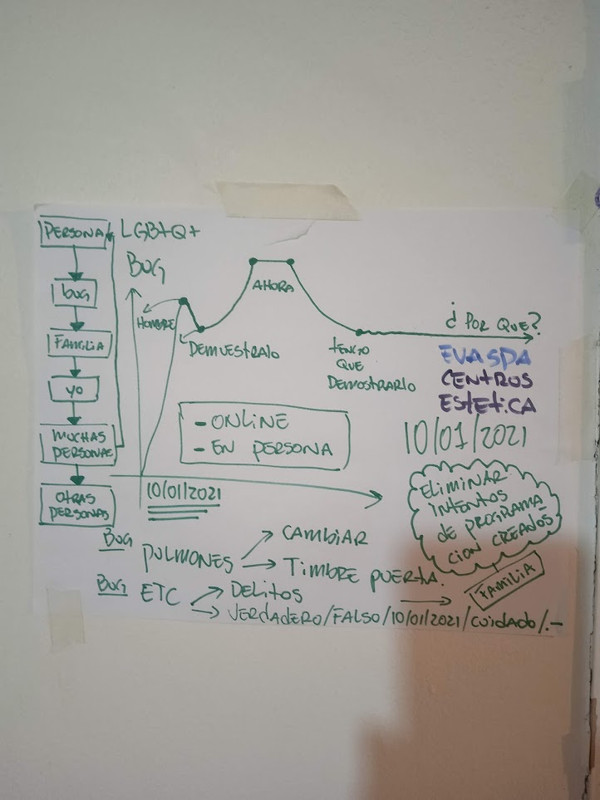 PERSONA
LGBTQ+
BUG
bug
FAMILIA
yo
MUCHAS
PERSONAS
OTRAS
PERSONAS
HOMBRE
DEMUESTRALO
AHORA
TENGO
QUE
DEMOSTRARLO
¿POR QUE?
EVASPA
CENTROS
ESTETICA
10/01/2021
- ONLINE
- EN PERSONA
10/01/2021
ELIMINAR
INTENTOS
DE PROGRAMA
CION CREANOS
FAMILIA
BUG
PULMONES
CAMBIAR
TIMBRE PUERTA.
BUG
ETC
DELITOS
VERDADERO/FALSO/10/01/2021/CUIDADO/.-